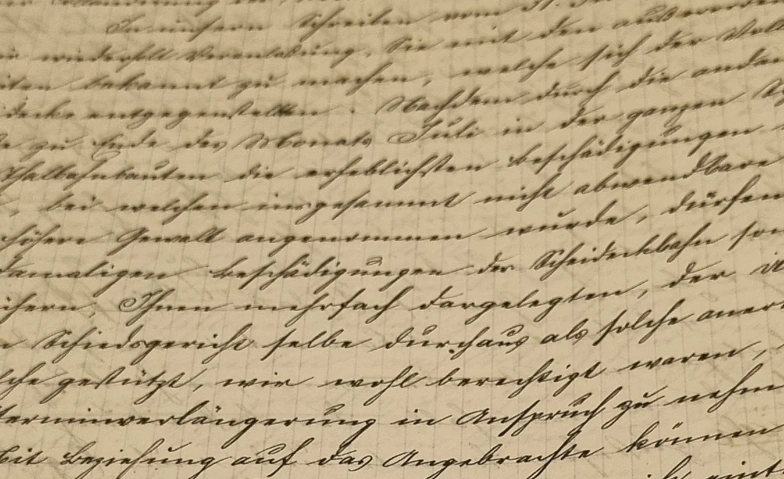 In unserm Schreiben vom 31.
wiederholt Veranlaßung, Sie mit den
bekannt zu machen, welche sich der
entgegenstellten. Nachdem durch die
zu Ende des Monats Juli in der ganzen
Thalbahnbauten die erheblichsten Beschädigungen
, bei welchen insgesammt nicht abwendbare
höhere Gewalt angenommen wurde, dürfen
damaligen Beschädigungen der Scheideckbahn
Ihnen mehrfach dargelegten, der
Schiedsgericht selbe durchaus als solche
gestützt, wir wohl berechtigt waren,
terminverlängerung in Anspruch zu nehm
Mit Beziehung auf das Angebrachte können